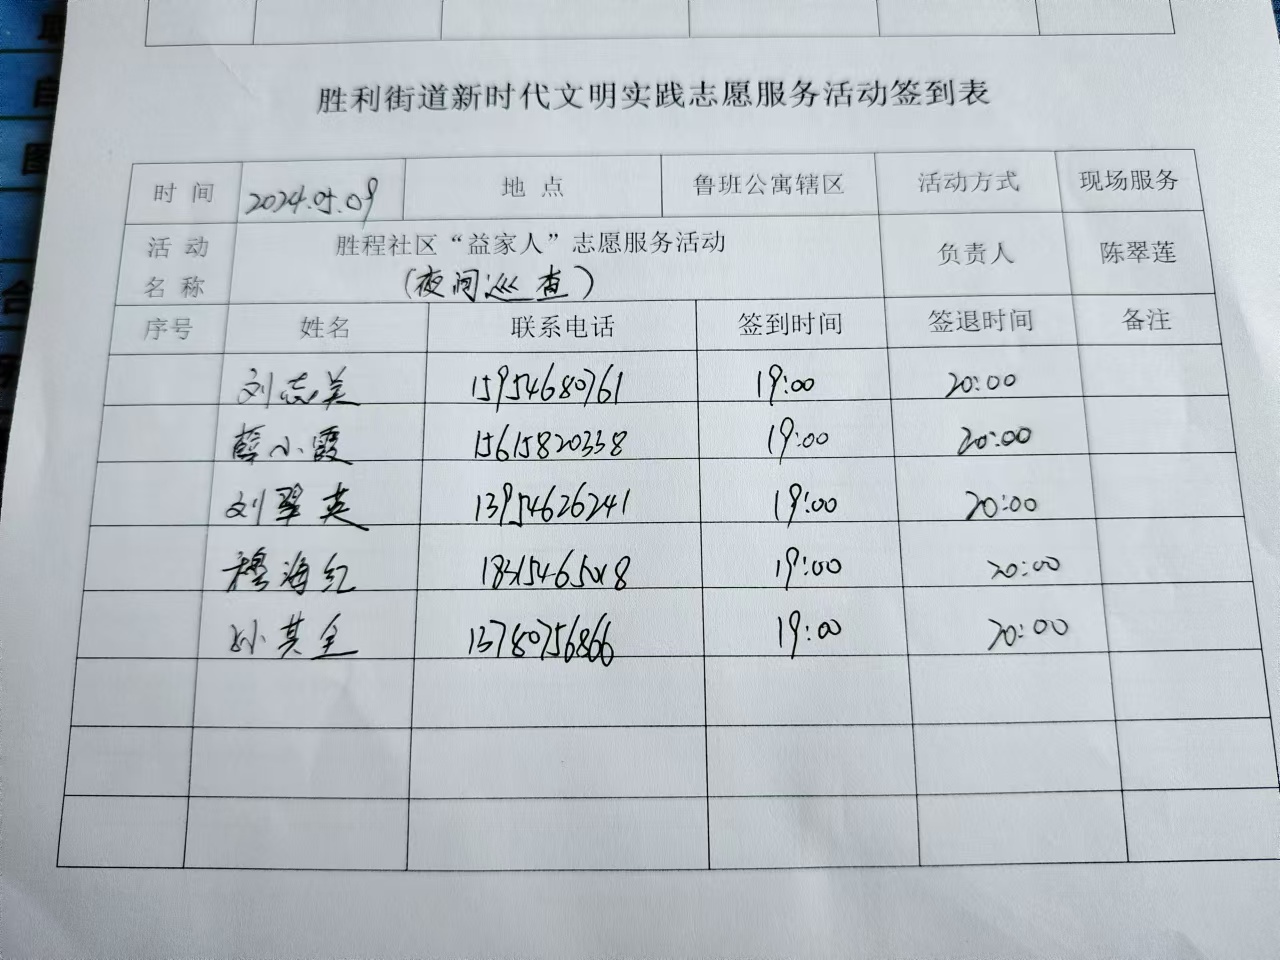 胜利街道新时代文明实践志愿服务活动签到表
时 间 2024.05.09 地 点 鲁班公寓辖区 活动方式 现场服务
活 动 名 称 胜程社区“益家人”志愿服务活动 负责人 陈翠莲
(夜间巡查)
序号 姓名 联系电话 签到时间 签退时间 备注
刘志美 15954680761 19:00 20:00
薛小霞 15615820338 19:00 20:00
刘翠英 13954626241 19:00 20:00
穆海红 19:00 20:00
孙其全 13780756866 19:00 20:00